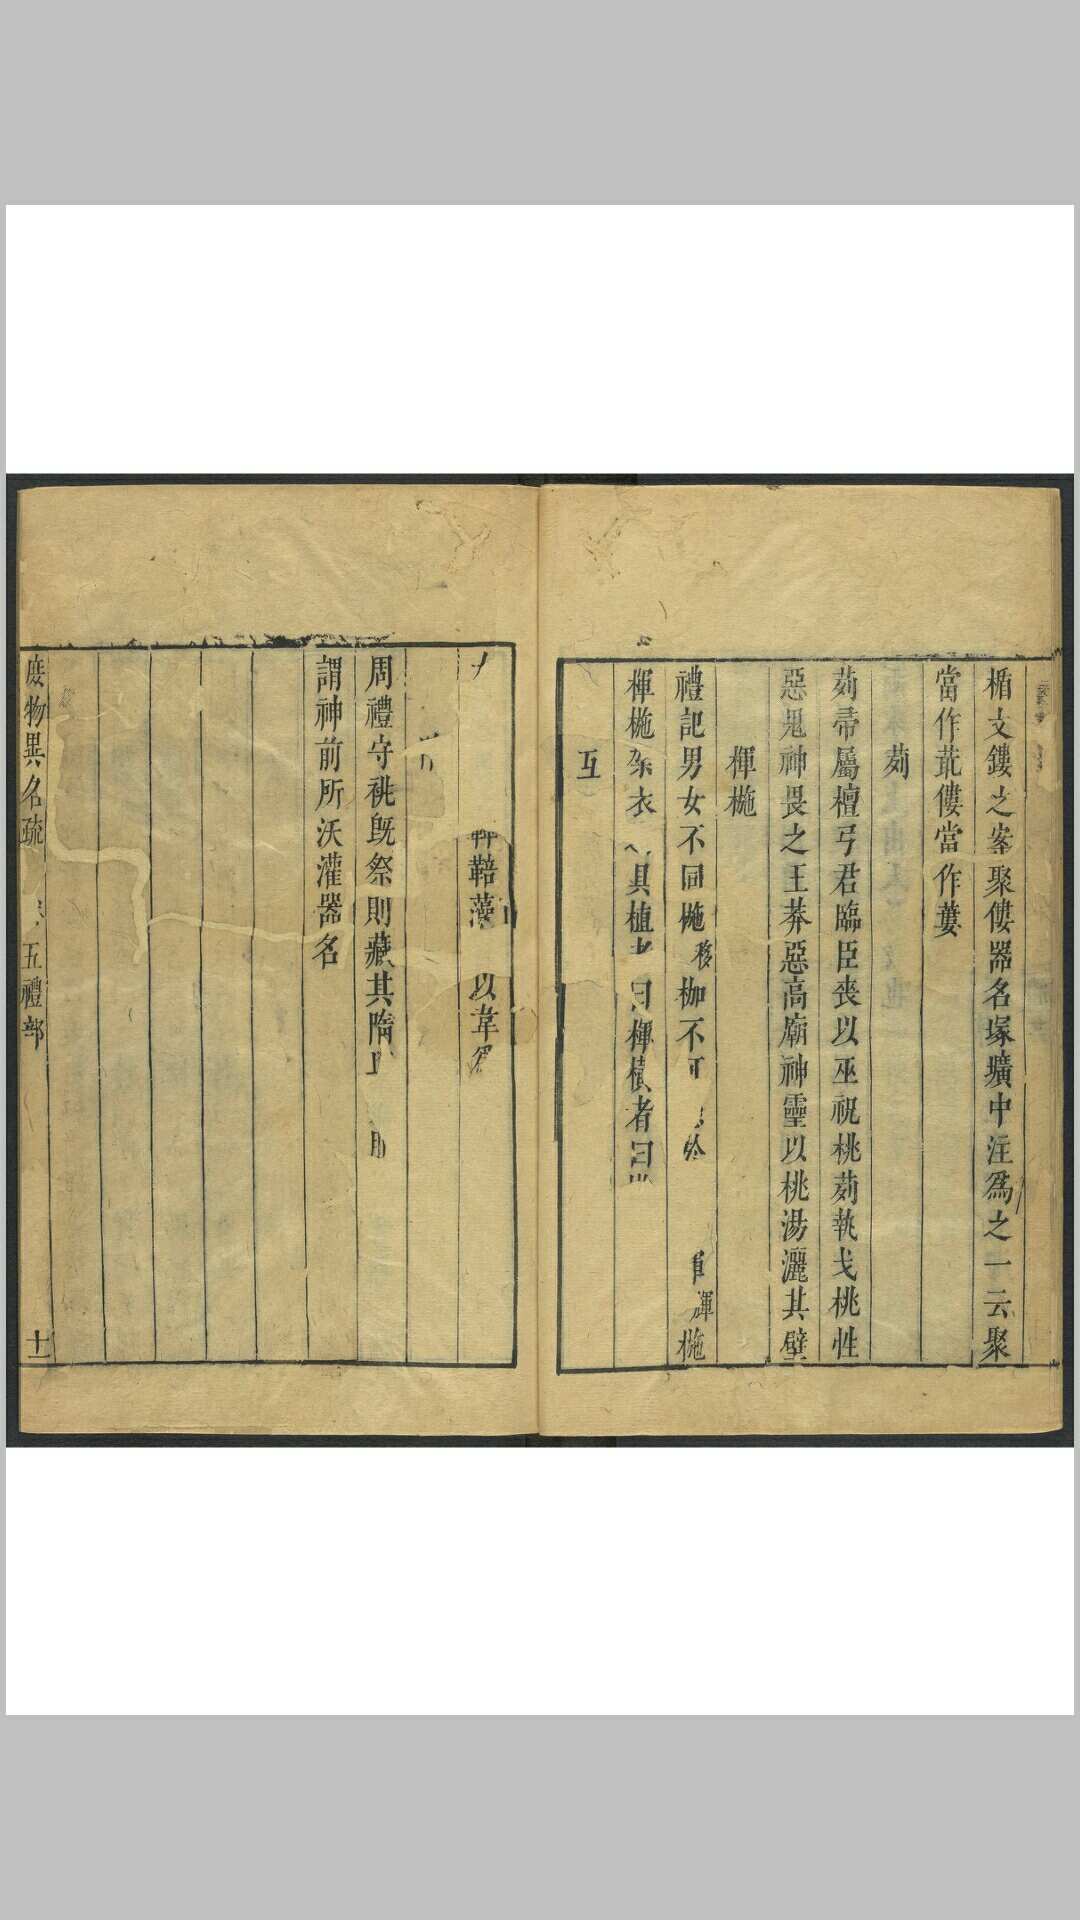 楯文鏤之峯聚僂器名塚壙中注爲之一云聚
當作菆僂當作蔞
茢
茢帚屬檀弓君臨臣喪以巫祝桃茢執戈桃性
惡鬼神畏之王莽惡高廟神靈以桃湯灑其壁
楎椸
禮記男女不同椸移枷不可 楎椸
楎椸架衣 具植 曰楎橫者曰
互
鞛藻 以韋
周禮守祧旣祭則藏其隋
謂神前所沃灌器名
庶物異名疏 五禮部 十一